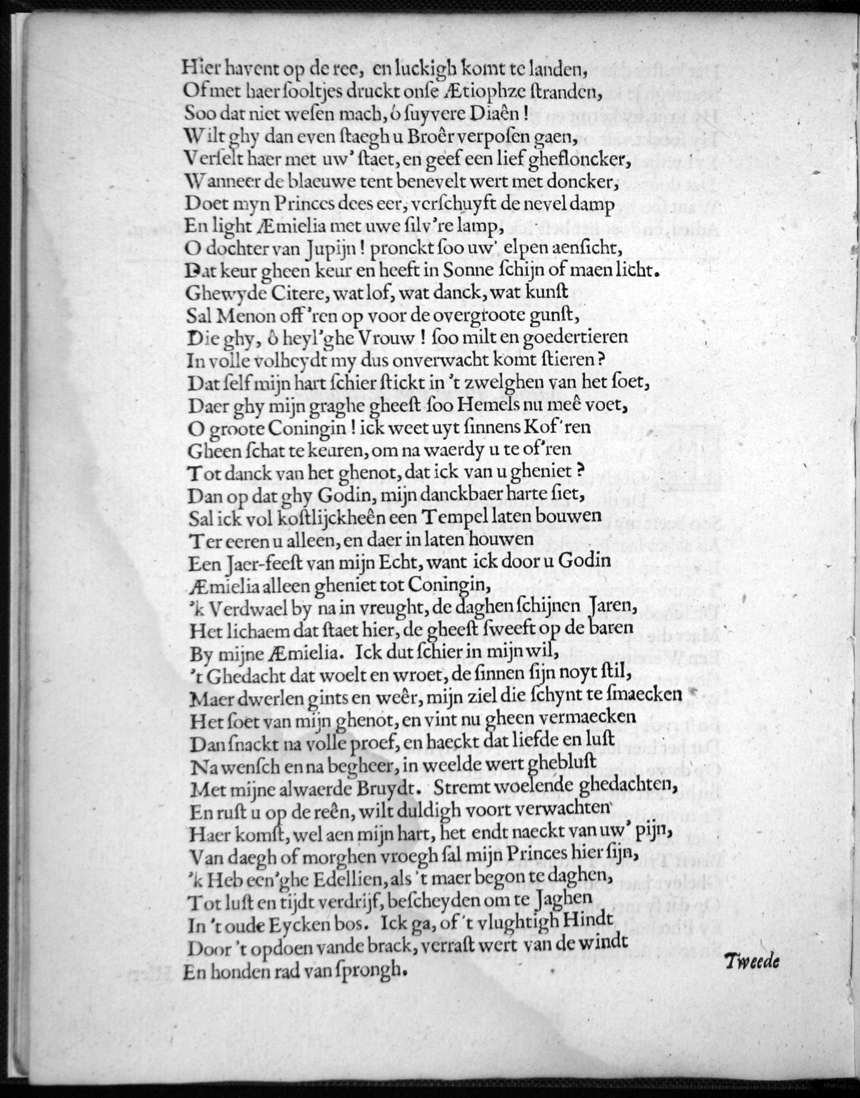 Hier havent op de ree, en luckigh komt te landen,
Of met haer ſooltjes druckt onſe Ætiophze ſtranden,
Soo dat niet weſen mach, ó ſuyvere Diaên !
Wilt ghy dan even ſtaegh u Broêr verpoſen gaen,
Verſelt haer met uw' ſtaet, en geef een lief ghefloncker,
Wanneer de blaeuwe tent benevelt wert met doncker,
Doet myn Princes dees eer, verſchuyft de nevel damp
En light Æmielia met uwe ſilv're lamp,
O dochter van Jupijn ! pronckt ſoo uw' elpen aenſicht,
Dat keur gheen keur en heeft in Sonne ſchijn of maen licht.
Ghewyde Citere, wat lof, wat danck, wat kunſt
Sal Menon off'ren op voor de overgroote gunſt,
Die ghy, ô heyl'ghe Vrouw ! ſoo milt en goedertieren
In volle volheydt my dus onverwacht komt ſtieren ?
Dat ſelf mijn hart ſchier ſtickt in 't zwelghen van het ſoet,
Daer ghy mijn graghe gheeſt ſoo Hemels nu meê voet,
O groote Coningin ! ick weet uyt ſinnens Kof'ren
Gheen ſchat te keuren, om na waerdy u te of'ren
Tot danck van het ghenot, dat ick van u gheniet ?
Dan op dat ghy Godin, mijn danckbaer harte ſiet,
Sal ick vol koſtlijckheên een Tempel laten bouwen
Ter eeren u alleen, en daer in laten houwen
Een Jaer-feeſt van mijn Echt, want ick door u Godin
Æmielia alleen gheniet tot Coningin,
'k Verdwael by na in vreught, de daghen ſchijnen Jaren,
Het lichaem dat ſtaet hier, de gheeſt ſweeft op de baren
By mijne Æmielia. Ick dut ſchier in mijn wil,
't Ghedacht dat woelt en wroet, de ſinnen ſijn noyt ſtil,
Maer dwerlen gints en weêr, mijn ziel die ſchynt te ſmaecken
Het ſoet van mijn ghenot, en vint nu gheen vermaecken
Dan ſnackt na volle proef, en haeckt dat liefde en luſt
Na wenſch en na begheer, in weelde wert ghebluſt
Met mijne alwaerde Bruydt. Stremt woelende ghedachten,
En ruſt u op de reên, wilt duldigh voort verwachten
Haer komſt, wel aen mijn hart, het endt naeckt van uw' pijn,
Van daegh of morghen vroegh ſal mijn Princes hier ſijn,
'k Heb een'ghe Edellien, als 't maer begon te daghen,
Tot luſt en tijdt verdrijf, beſcheyden om te Jaghen
In 't oude Eycken bos. Ick ga, of 't vlughtigh Hindt
Door 't opdoen vande brack, verraſt wert van de windt
En honden rad van ſprongh.
Tweede